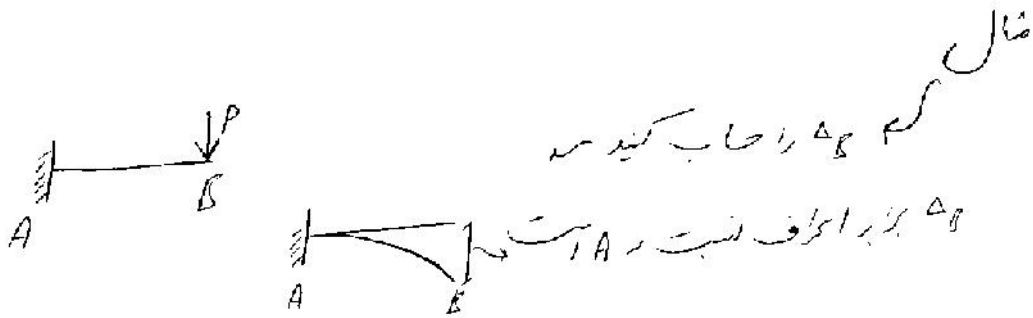 مثال
Δ_B را حساب کنید
P
A B
Δ_B برابر انحراف نسبت به A است
A B